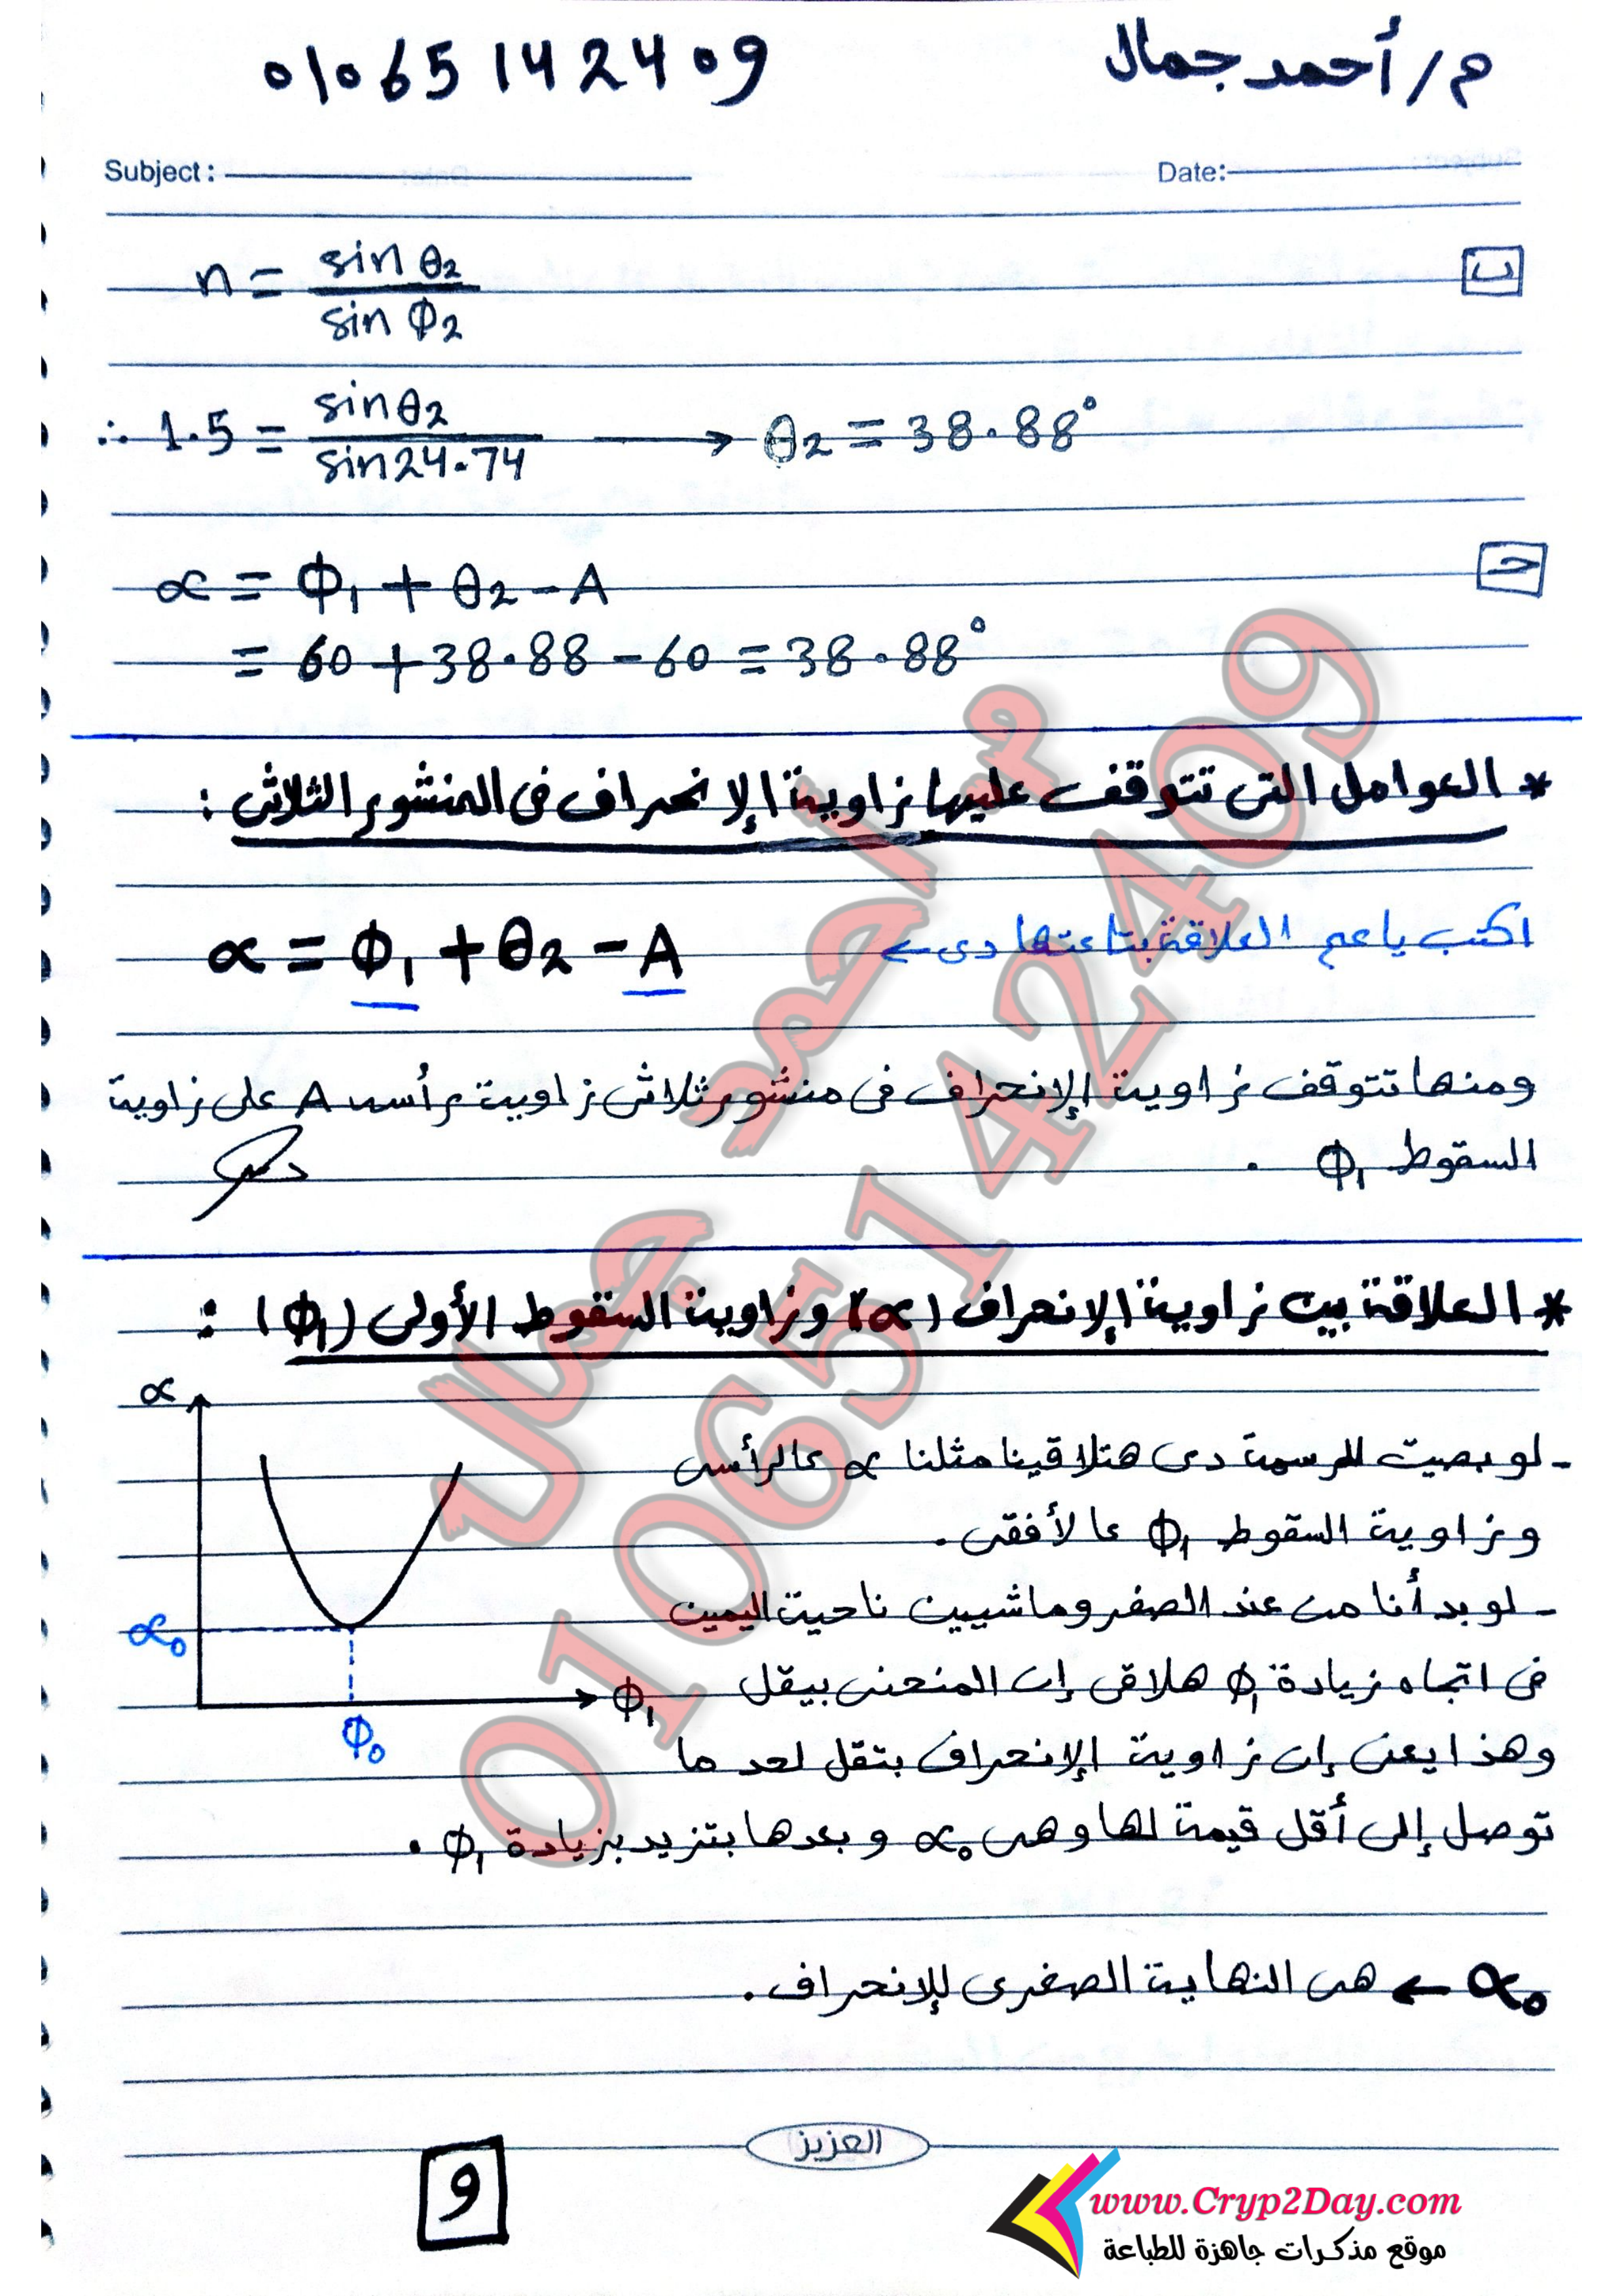 م/أحمد جمال 01065142409
Subject: Date:
ب n = sin θ2 / sin Φ2
∴ 1.5 = sin θ2 / sin 24.74 → θ2 = 38.88°
حـ α = Φ1 + θ2 - A
= 60 + 38.88 - 60 = 38.88°
* العوامل التى تتوقف عليها زاوية الإنحراف فى المنشور الثلاثى :
اكتب ياعم العلاقة بتاعتها دى ← α = Φ1 + θ2 - A
ومنها تتوقف زاوية الإنحراف فى منشور ثلاثى زاوية رأسه A على زاوية
السقوط Φ1 .
* العلاقة بين زاوية الإنحراف (α) وزاوية السقوط الأولى (Φ1) :
α
- لو بصيت للرسمة دى هتلاقينا مثلنا α عالرأسى
وزاوية السقوط Φ1 عالأفقى .
- لو بدأنا من عند الصفر وماشيين ناحية اليمين
α0
فى اتجاه زيادة Φ1 هلاقى إن المنحنى بيقل
Φ1
Φ0
وهذا يعنى إن زاوية الإنحراف بتقل لحد ما
توصل إلى أقل قيمة لها وهى α0 وبعدها بتزيد بزيادة Φ1 .
α0 ← هى النهاية الصغرى للإنحراف .
العزيز
9
www.Cryp2Day.com
موقع مذكرات جاهزة للطباعة
م أحمد جمال
01065142409